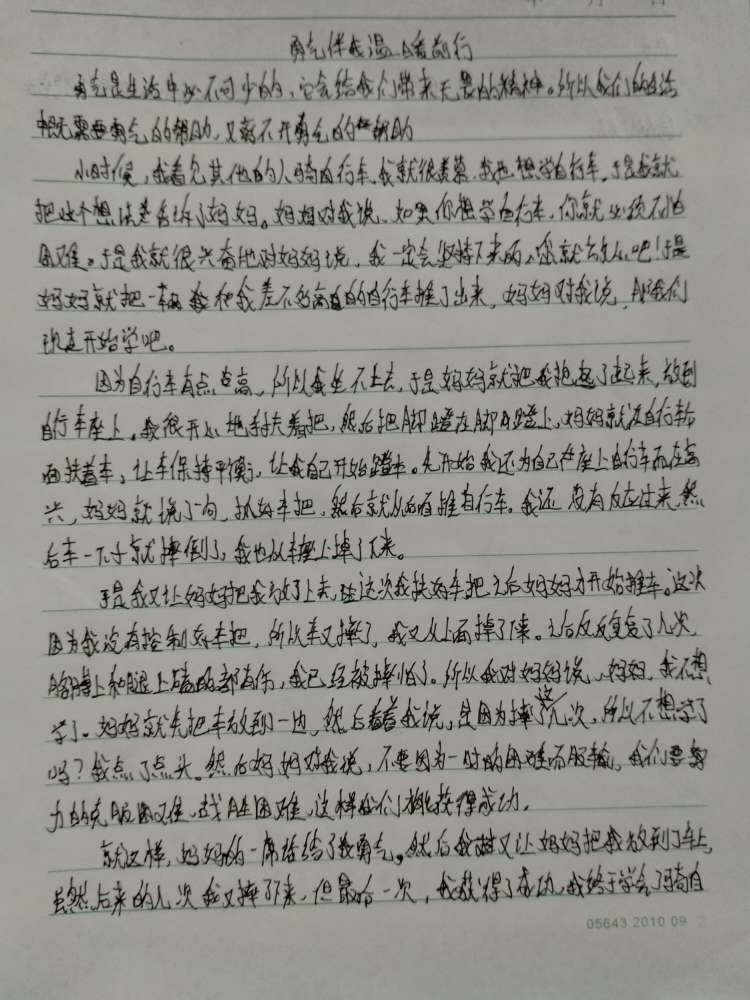 勇气伴我温暖前行
勇气是生活中必不可少的，它会给我们带来无畏的精神。所以我们的生活
中既需要勇气的帮助，又离不开勇气的帮助
小时候，我看见其他的人骑自行车，我就很羡慕，我也想学自行车。于是我就
把这个想法告诉了妈妈。妈妈对我说，如果你想学自行车，你就必须不怕
困难。于是我就很兴奋地对妈妈说，我一定会坚持下来的，你就放心吧！于是
妈妈就把一辆和我差不多高的自行车推了出来，妈妈对我说，那我们
现在开始学吧。
因为自行车有点高，所以我坐不上去，于是妈妈就把我抱起了起来，放到
自行车座上。我很开心地扶着把，然后把脚蹬在脚蹬上，妈妈就在自行车后
面扶着车，让车保持平衡，让我自己开始蹬车。先开始我还为自己坐上自行车而在高
兴，妈妈就说了一句，抓好车把，然后就从后面推自行车。我还没有反应过来，然
后车一下子就摔倒了，我也从车座上掉了下来。
于是我又让妈妈把我放了上去，这次我扶好车把之后妈妈才开始推车。这次
因为我没有控制好车把，所以车又摔了，我又从上面掉了下来。之后反反复复了几次，
胳膊上和腿上磕的都有伤，我已经被摔怕了。所以我对妈妈说，妈妈，我不想
学了。妈妈就先把车放到一边，然后看着我说，是因为摔了这几次，所以不想学了
吗？我点了点头。然后妈妈对我说，不要因为一时的困难而服输，我们要努
力的克服困难，战胜困难，这样我们才能获得成功。
就这样，妈妈的一席话给了我勇气。然后我就又让妈妈把我放到了车上，
虽然后来的几次我又摔了下来，但最后一次，我获得了成功，我终于学会了骑自
05643 2010 09